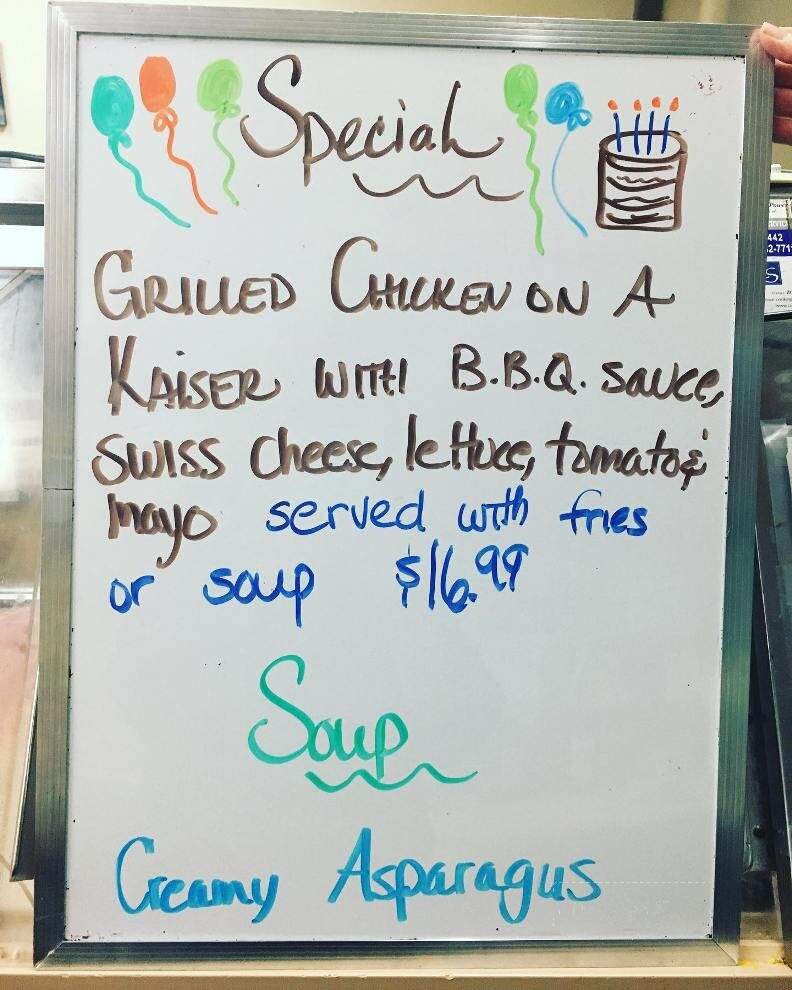 Special
GRILLED CHICKEN ON A
KAISER WITH B.B.Q. SAUCE,
SWISS Cheese, lettuce, tomato &
mayo served with fries
or soup $16.99
Soup
Creamy Asparagus
442
2-771